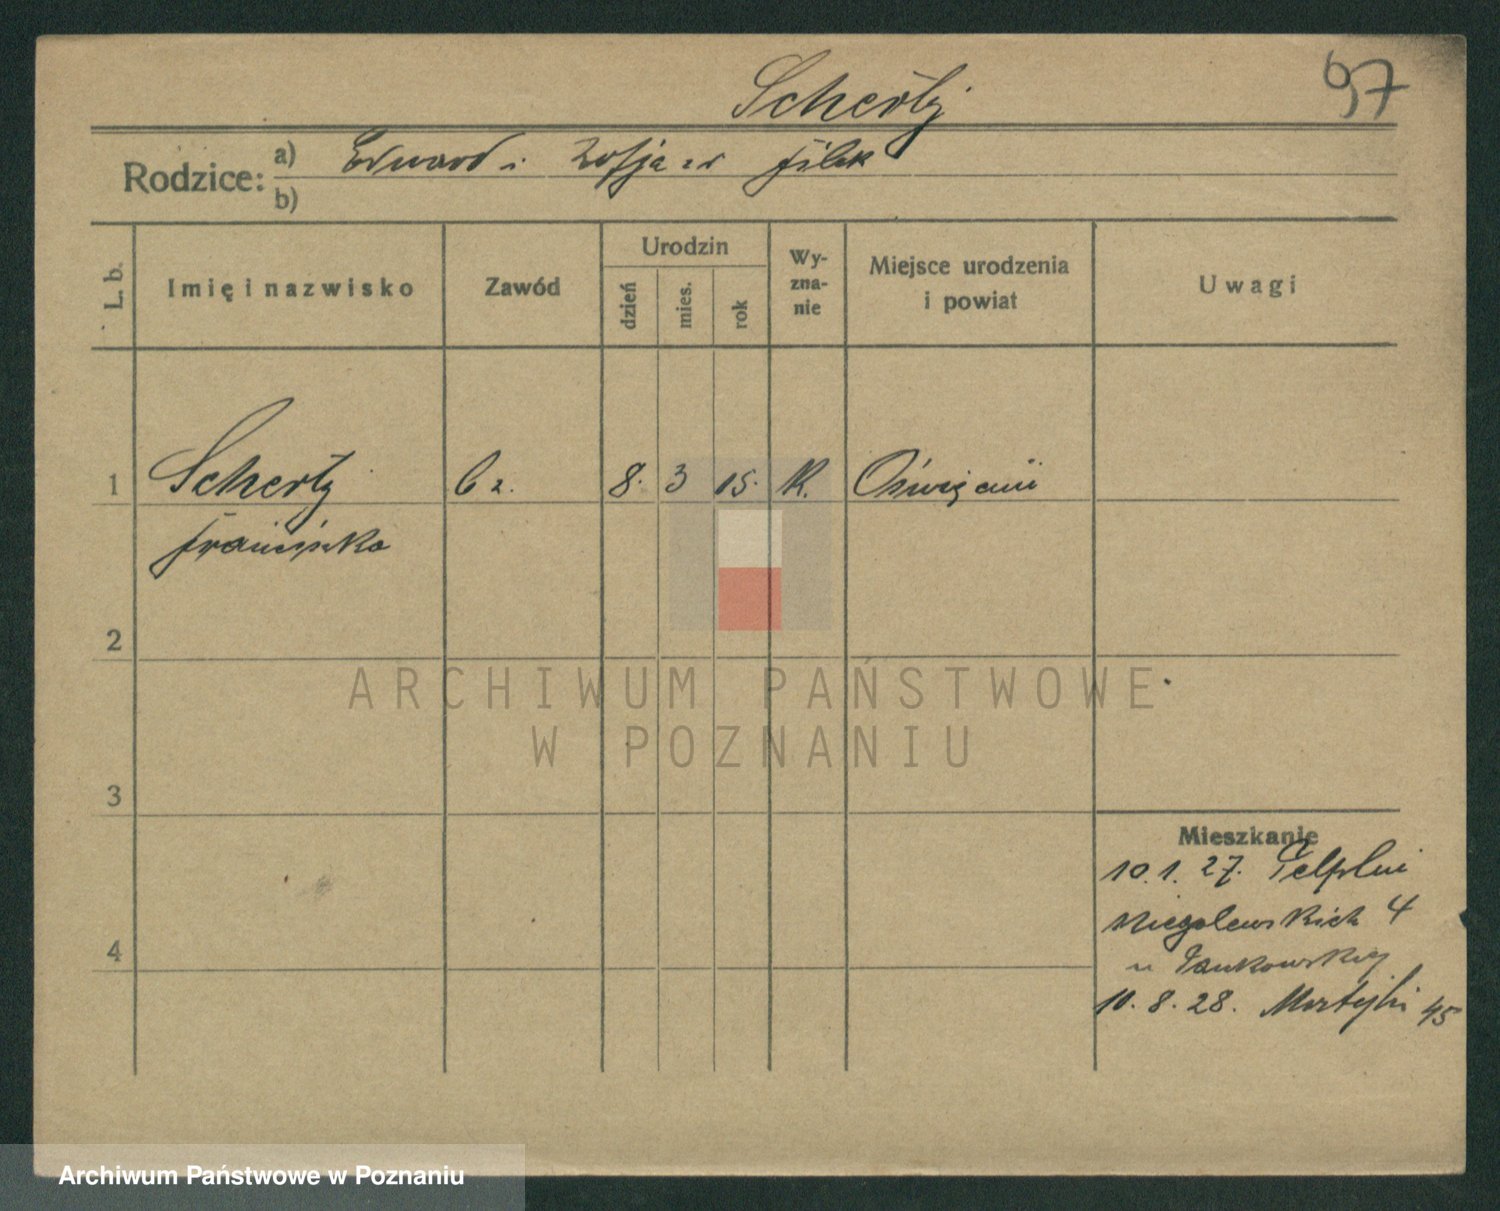 97
Schertz
Rodzice:
a) Edward i Zofja zd Filek
b)
L. b.
Imię i nazwisko
Zawód
Urodzin
dzień
mies.
rok
Wy-
zna-
nie
Miejsce urodzenia
i powiat
Uwagi
1 Schertz bz. 8. 3 15. K.
Franciszka
2
3
4
Mieszkanie
10.1.27. Pelplin
Niegolewskich 4
u Jankowskiej
10.8.28. 45
ARCHIWUM PAŃSTWOWE
W POZNANIU
Archiwum Państwowe w Poznaniu